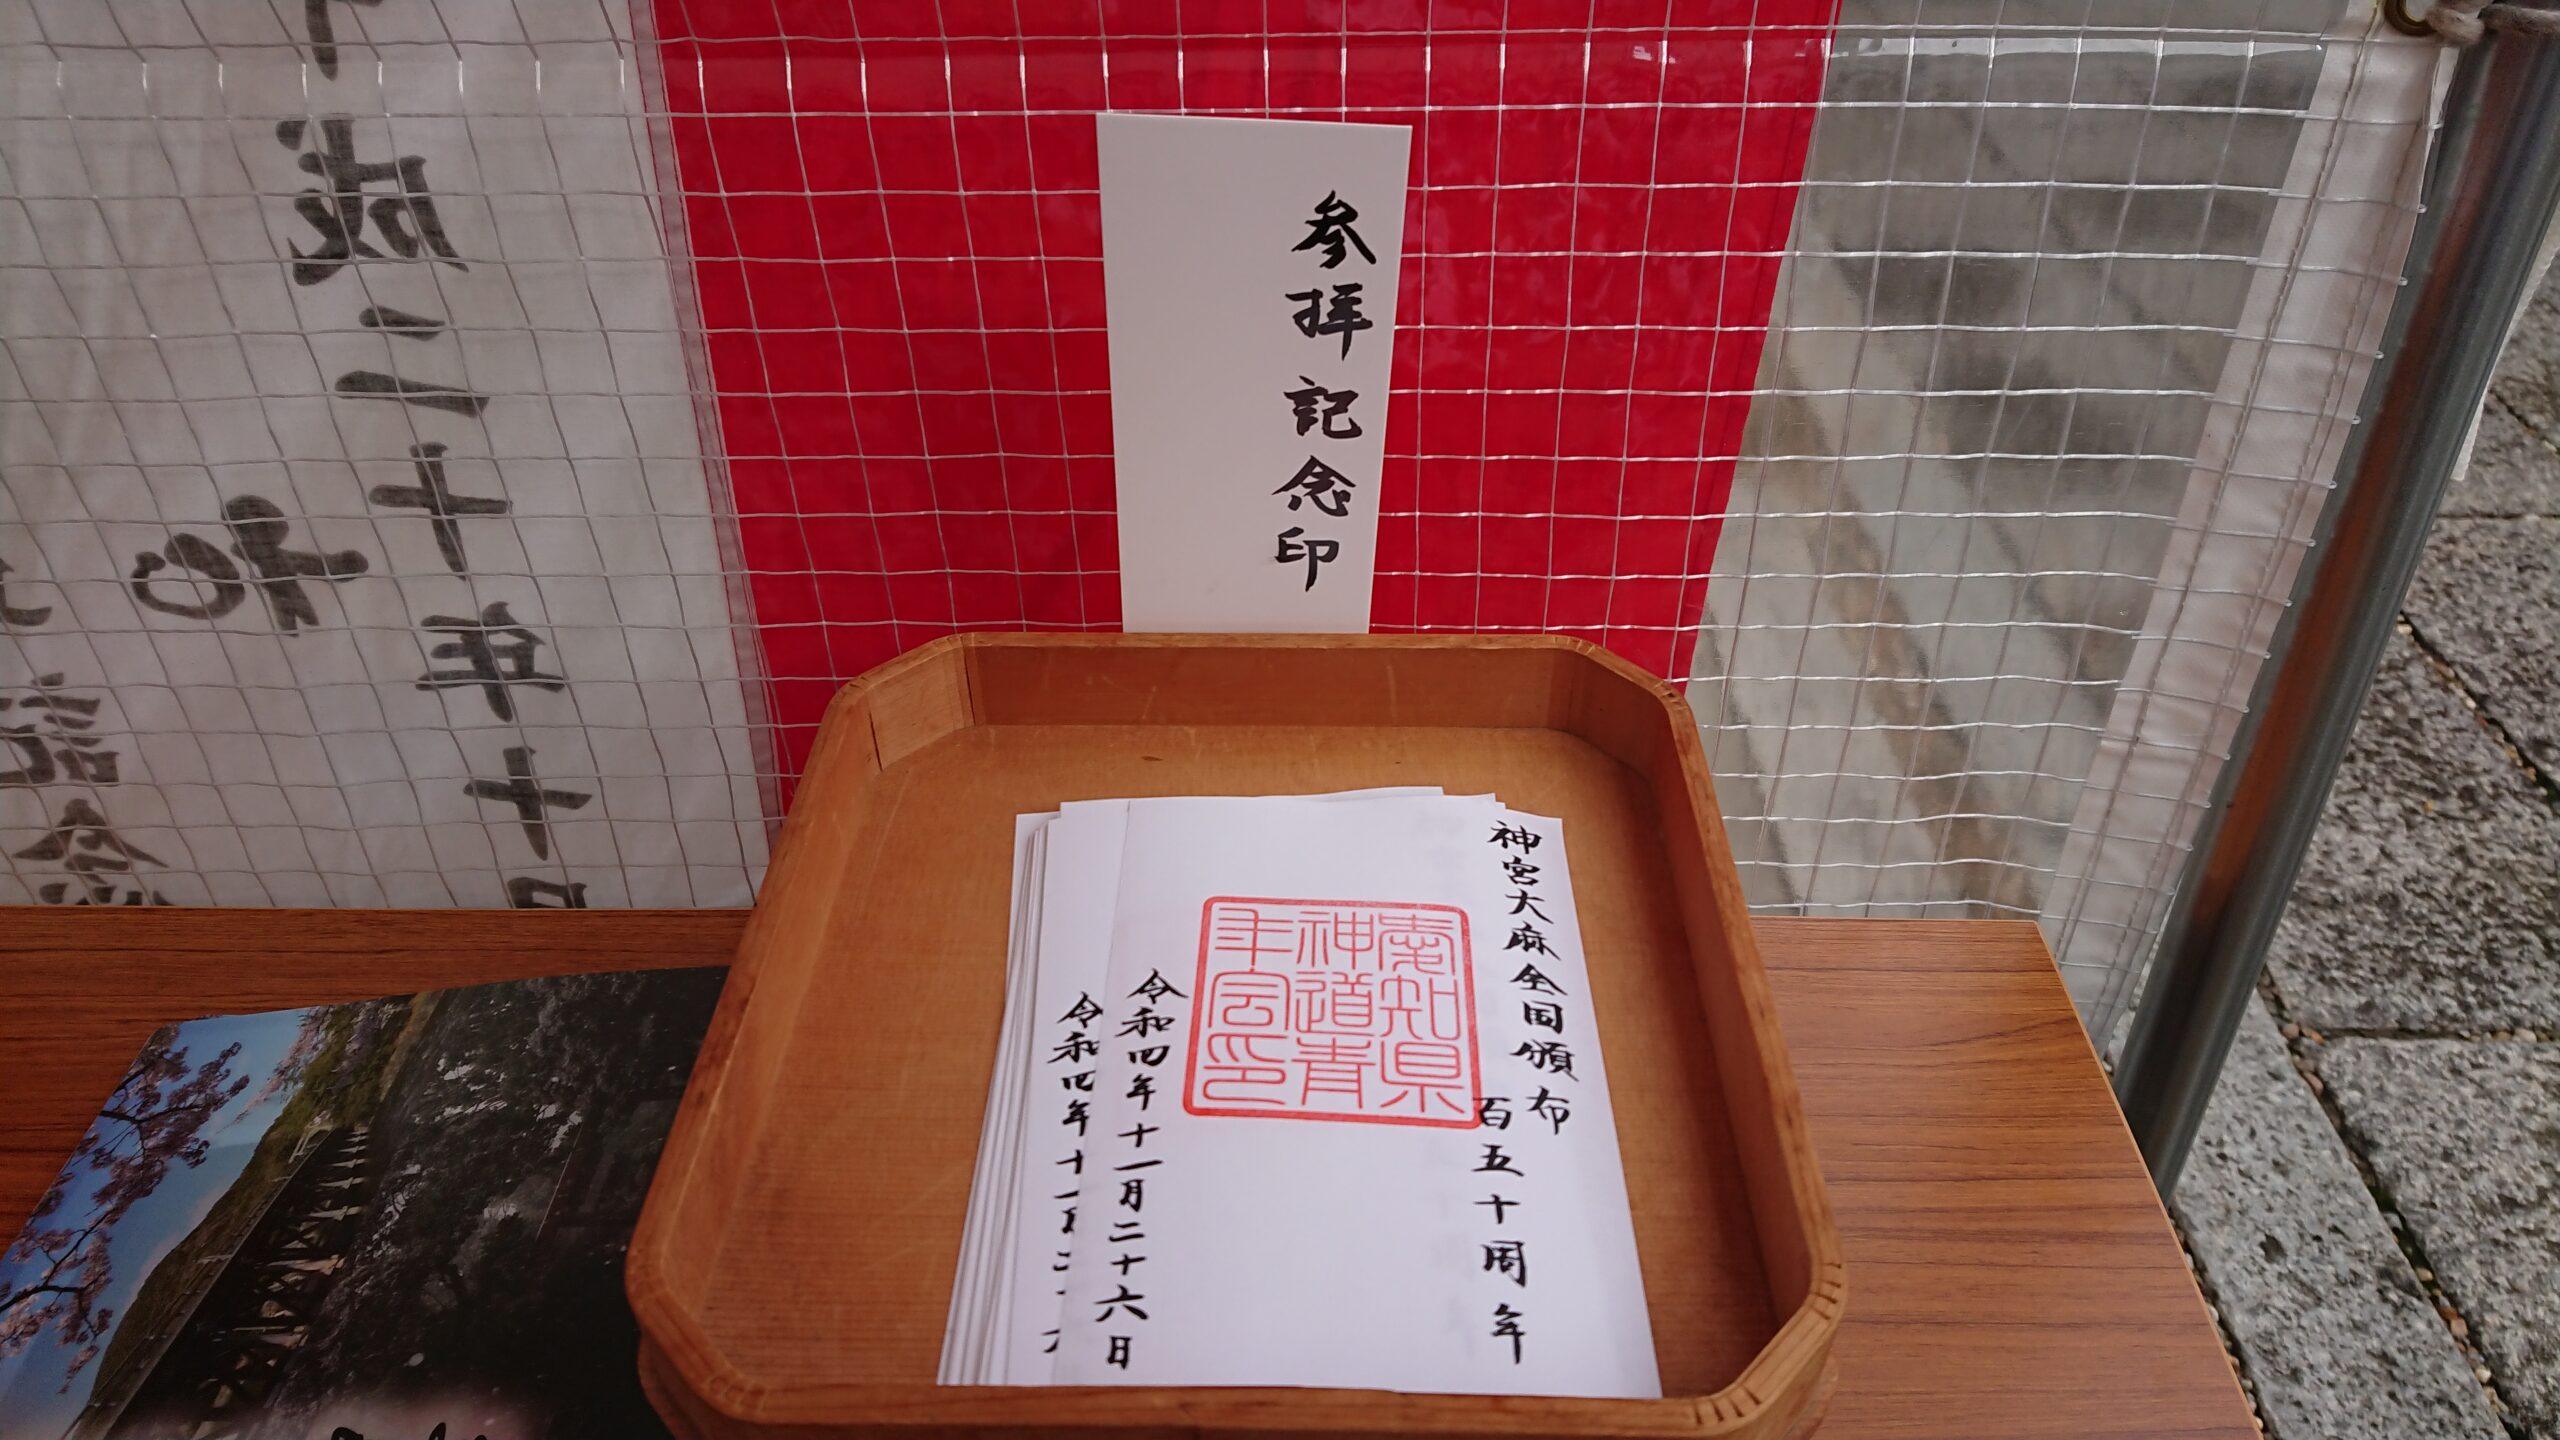 参拝記念印
神宮大麻全国頒布
百五十周年
愛知県
神道青
年会印
令和四年十一月二十六日
令和四年十一月二十六
成二十年十月
和
記念